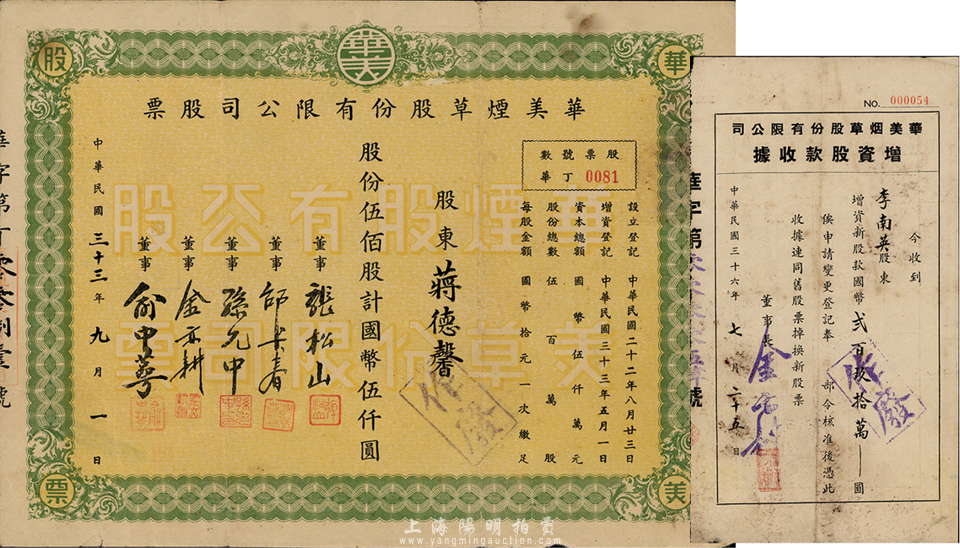 華美
股
華
票
美
華美煙草股份有限公司股票
股票號數
華丁 0081
設立登記 中華民國二十二年八月廿三日
增資登記 中華民國三十三年五月一日
資本總額 國幣伍仟萬元
股份總數 伍百萬股
每股金額 國幣拾元一次繳足
股東 蔣德馨
股份伍佰股計國幣伍仟圓
董事 張松山
董事
董事 孫元中
董事 金亦耕
董事 俞中蕚
中華民國三十三年九月一日
作廢
華煙股有公股
美草份限司票
NO. 000054
華美烟草股份有限公司
增資股款收據
今收到
李南英股東
增資新股款國幣弍百玖拾萬——圓
俟申請變更登記奉 部令核准後憑此
收據連同舊股票掉換新股票
董事長 金
中華民國三十六年七月二十五日
作廢
上海陽明拍賣
www.yangmingauction.com